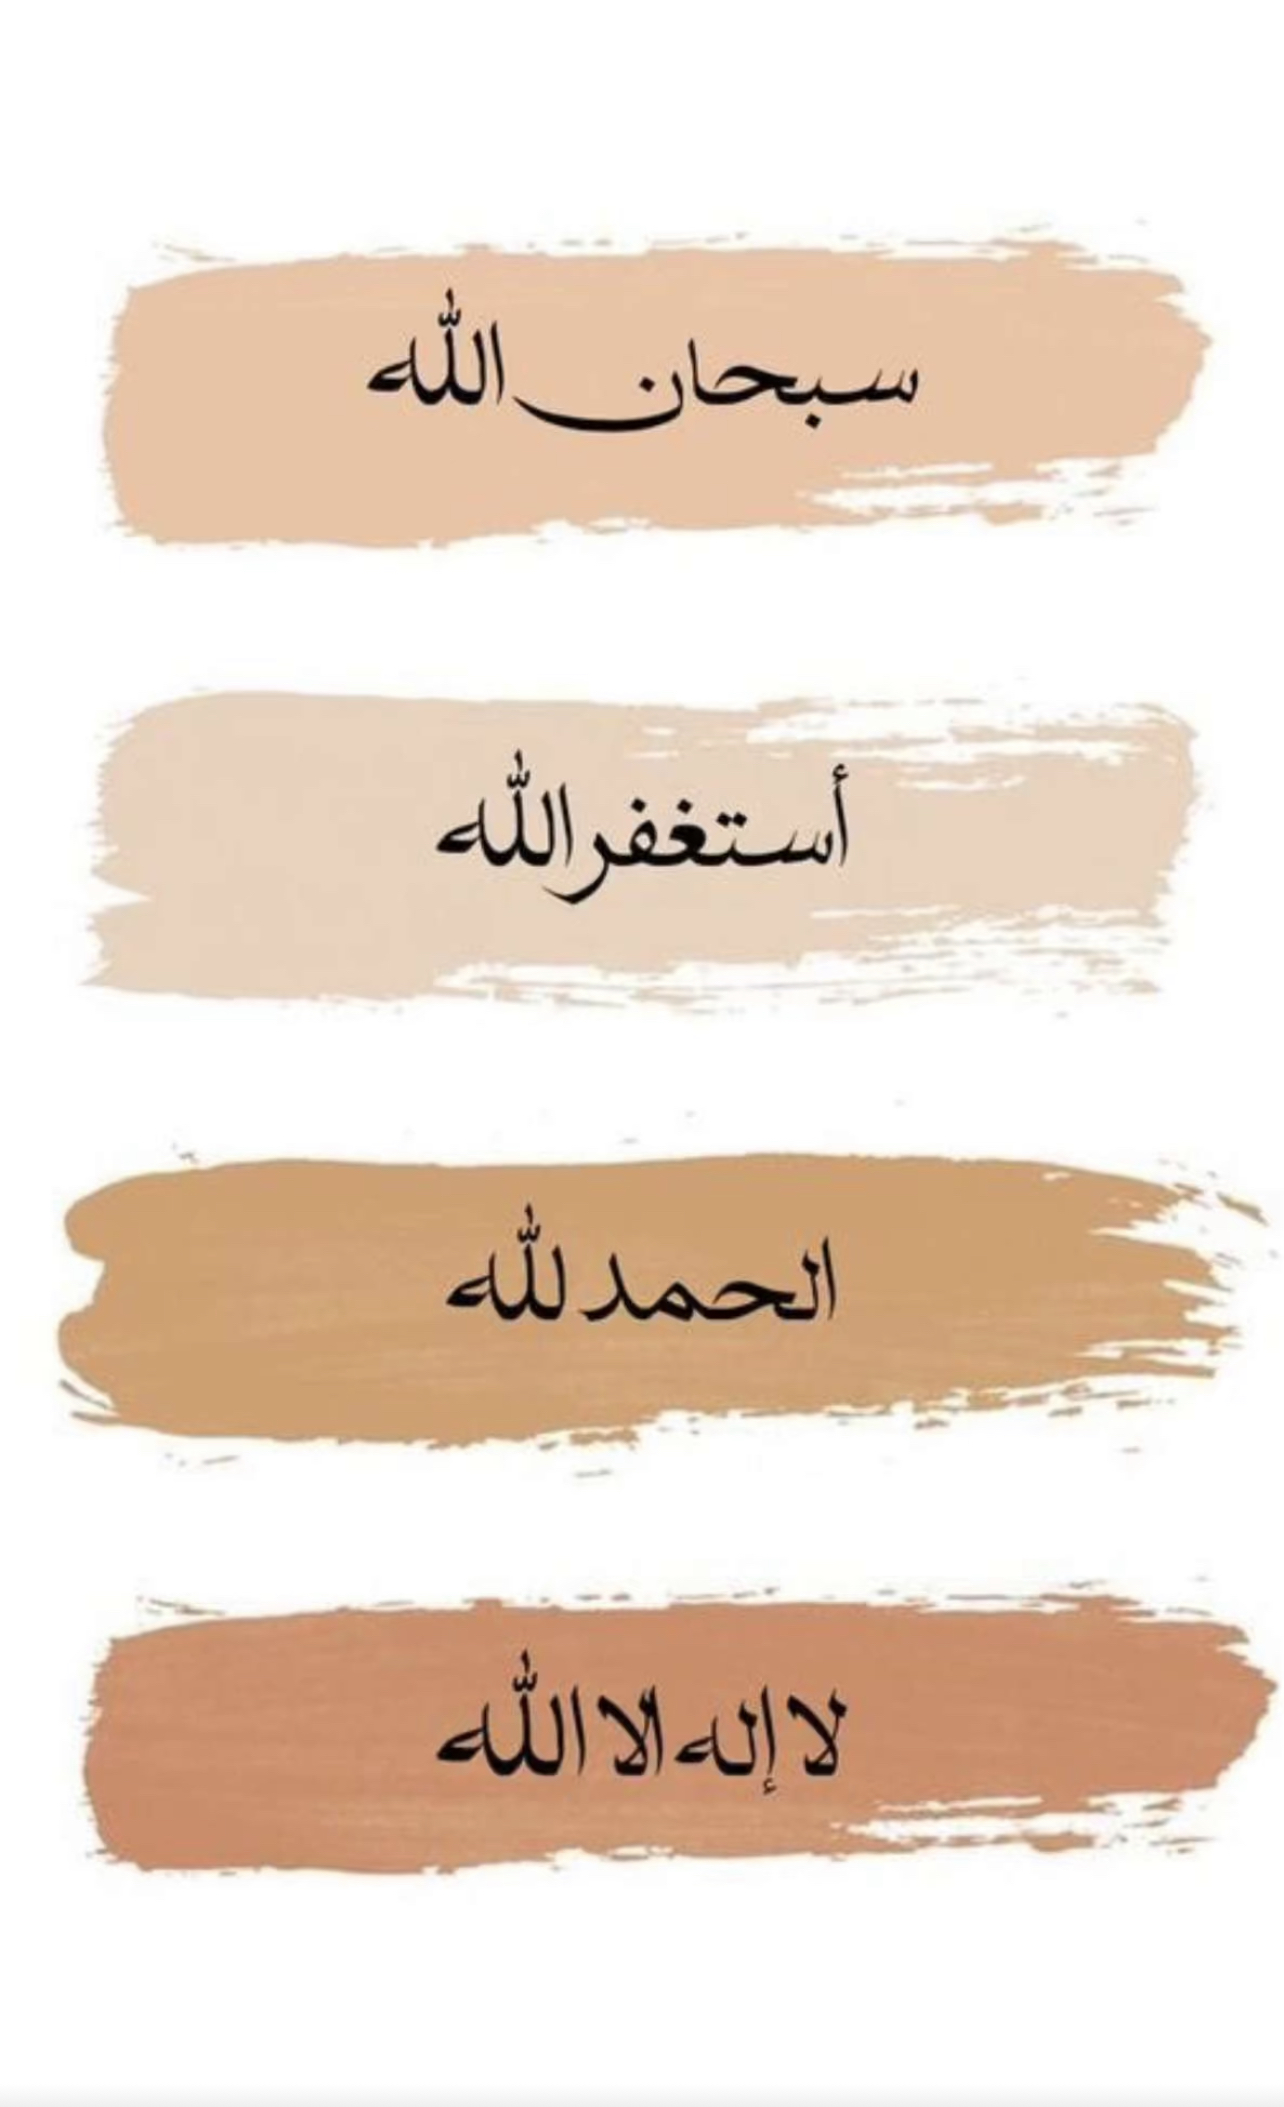 سبحان الله
أستغفر الله
الحمد لله
لا إله الا الله